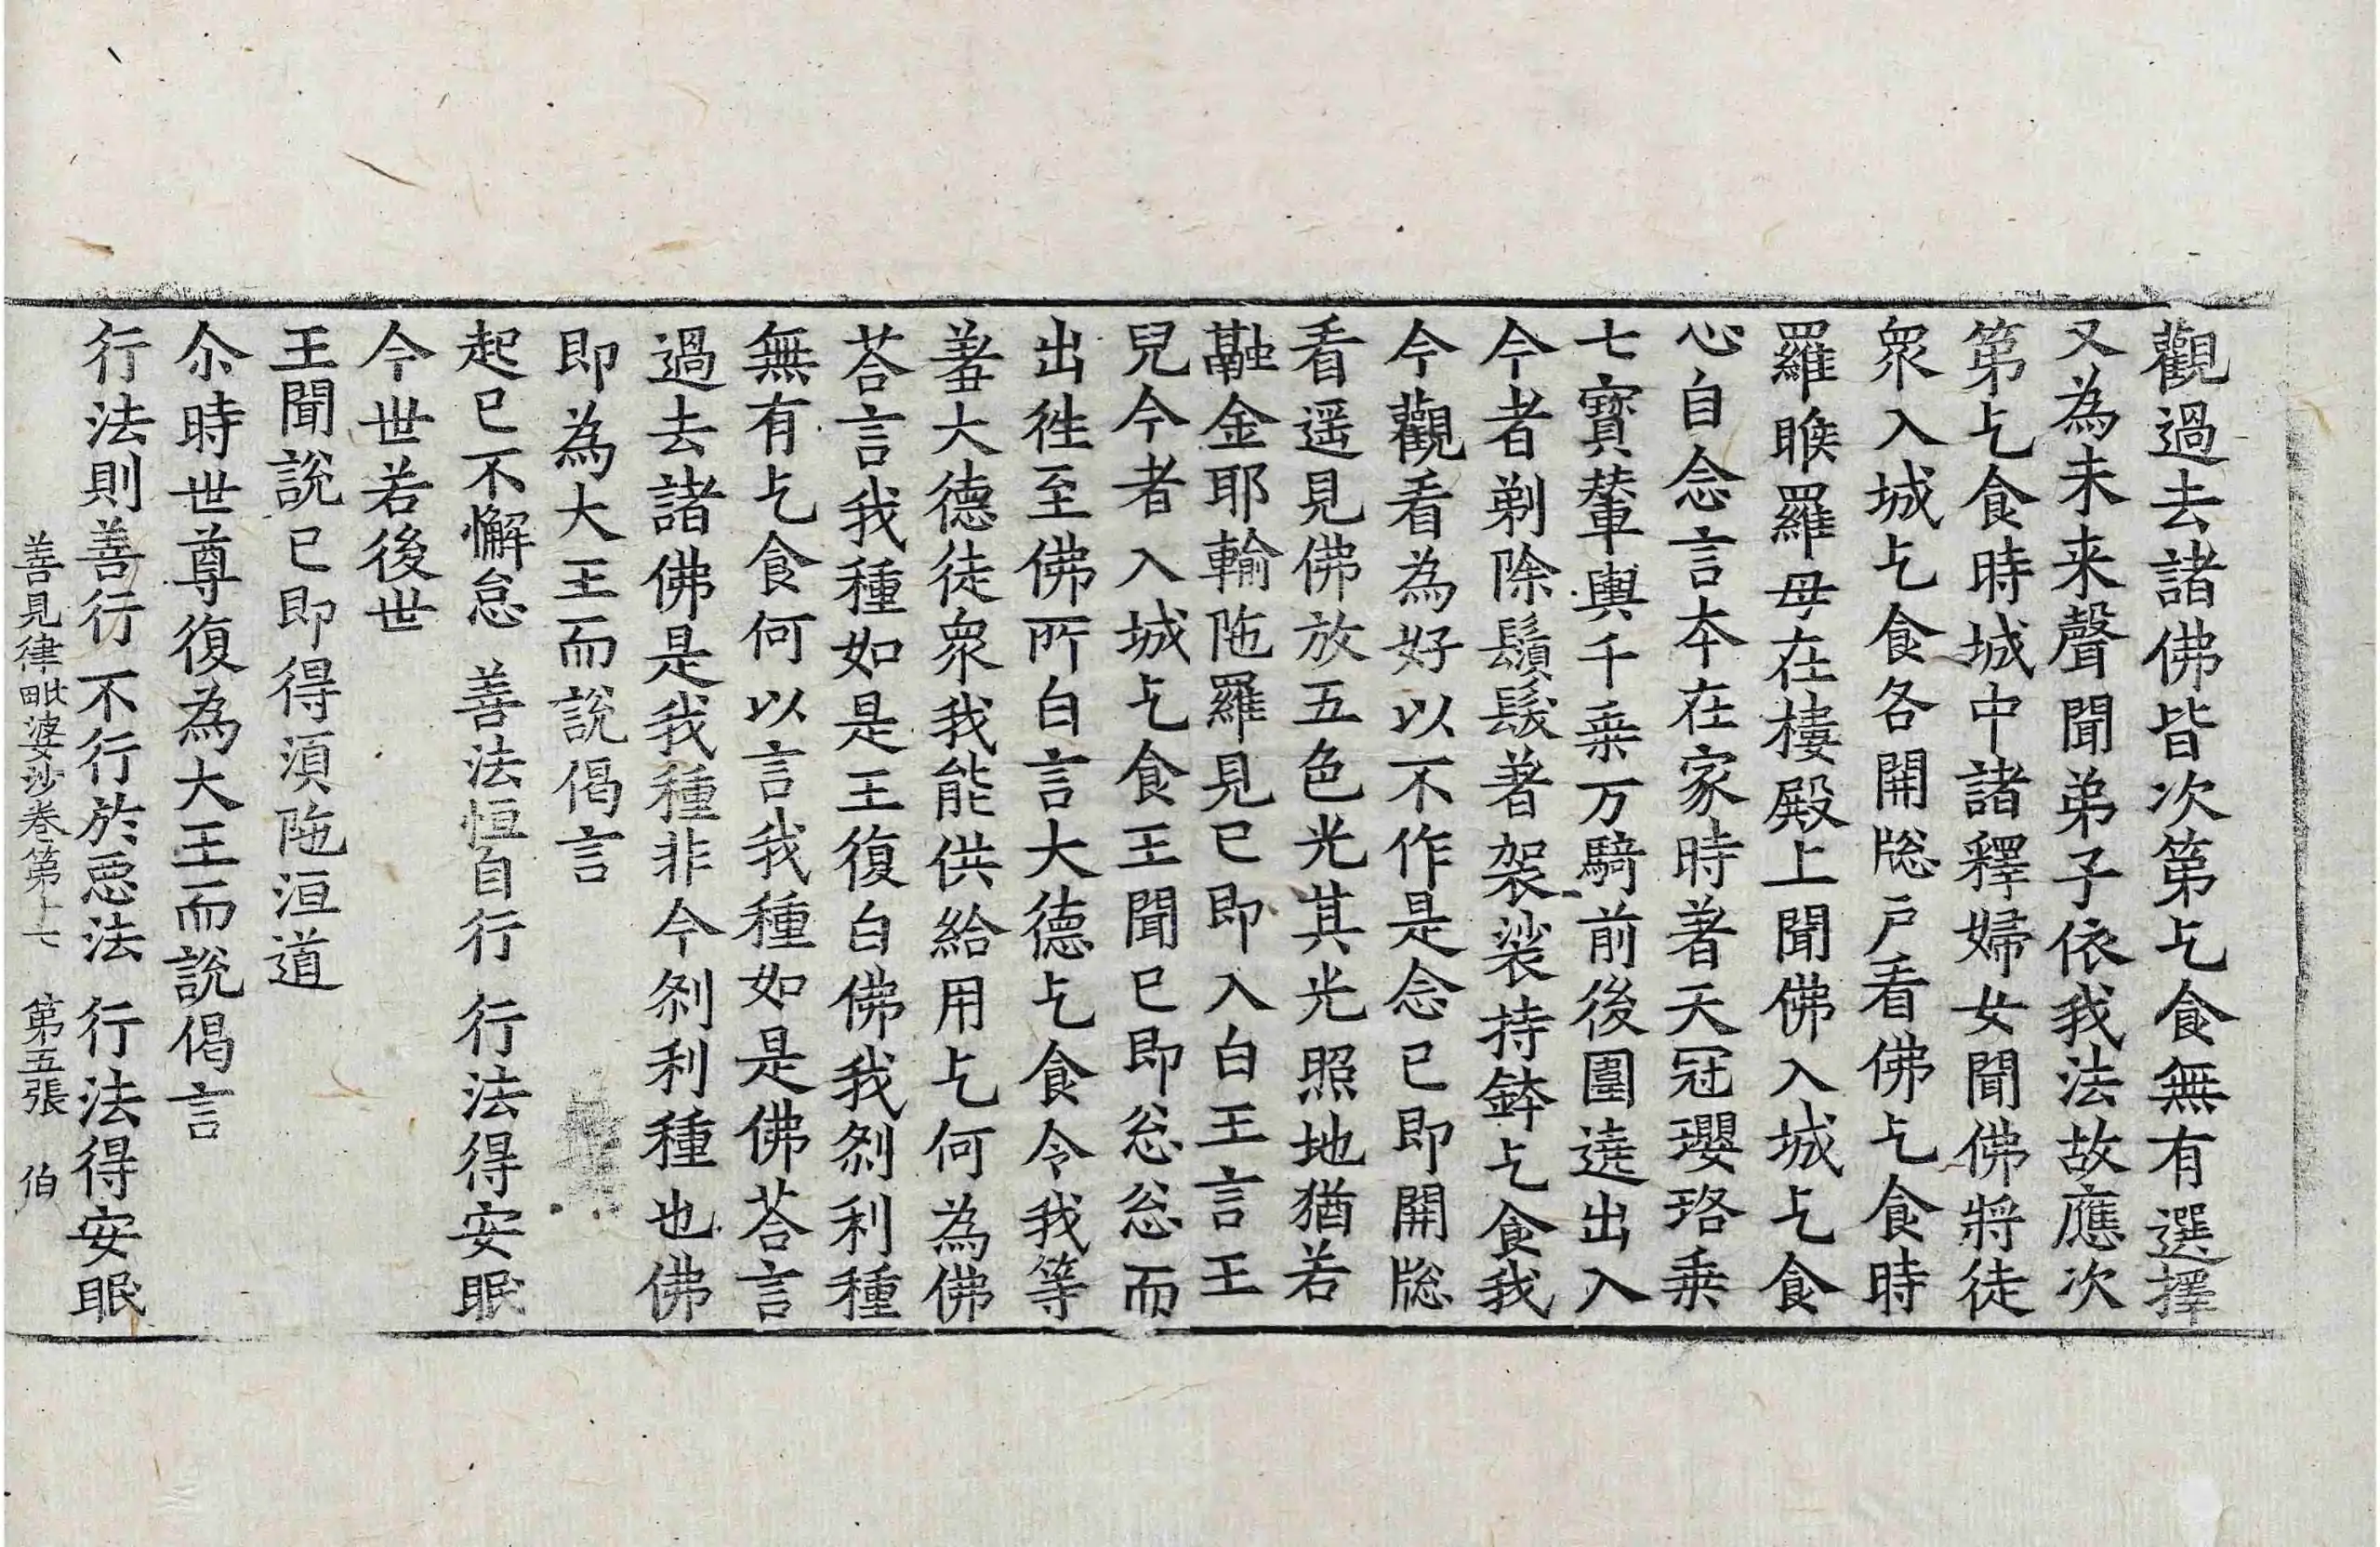 觀過去諸佛皆次第乞食無有選擇
又為未来聲聞弟子依我法故應次
第乞食時城中諸釋婦女聞佛將徒
衆入城乞食各開牎戶看佛乞食時
羅睺羅母在樓殿上聞佛入城乞食
心自念言夲在家時著天冠瓔珞乗
七寳輦輿千乗万騎前後圍遶出入
今者剃除鬚髮著袈裟持鉢乞食我
今觀看為好以不作是念已即開牎
看遥見佛放五色光其光照地猶若
融金耶輸陁羅見已即入白王言王
兒今者入城乞食王聞已即忩忩而
出徃至佛所白言大德乞食令我等
羞大德徒衆我能供給用乞何為佛
荅言我種如是王復白佛我刹利種
無有乞食何以言我種如是佛荅言
過去諸佛是我種非今刹利種也佛
即為大王而說偈言
起已不懈怠 善法恒自行 行法得安眠
今世若後世
王聞說已即得湏陁洹道
尒時世尊復為大王而說偈言
行法則善行 不行於惡法 行法得安眠
善見律毗婆沙卷第十七 第五張 伯